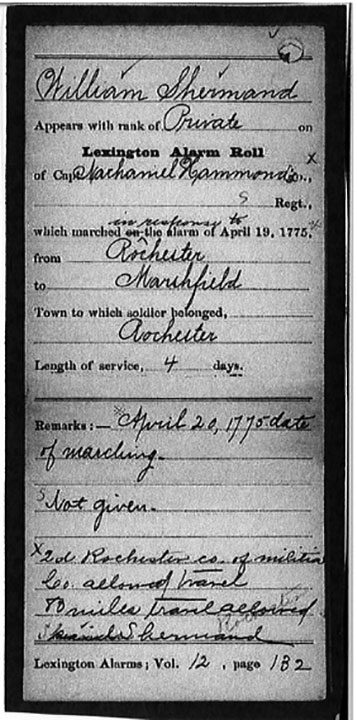 William Shermand
Appears with rank of Private on
Lexington Alarm Roll
of Cap. Nathaniel Hammond's Co., x
S Regt.,
in response to
which marched on the alarm of April 19, 1775, *
from Rochester
to Marshfield
Town to which soldier belonged,
Rochester
Length of service, 4 days.
Remarks:— * April 20, 1775 date
of marching.
S Not given.
x 2d Rochester co. of militia
Co. allowed travel
80 miles travel allowed
Shermand
Lexington Alarms; Vol. 12, page 132